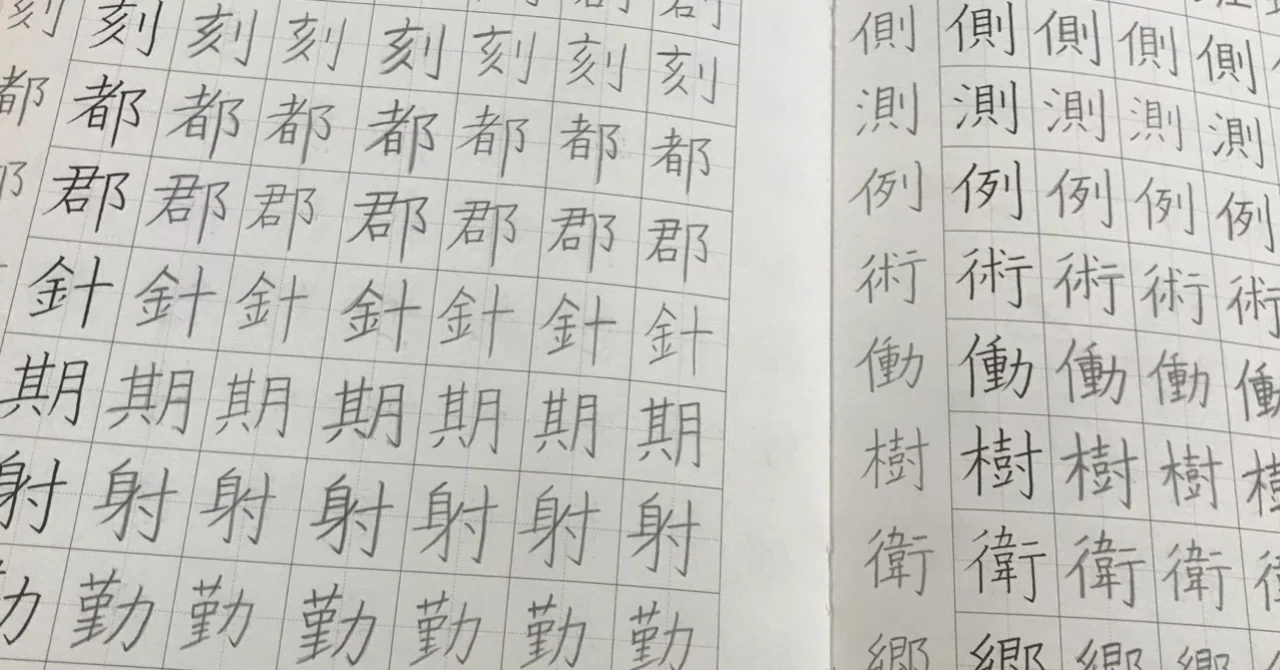 刻 刻 刻 刻 刻 刻 刻 刻
都 都 都 都 都 都 都 都
郡 郡 郡 郡 郡 郡 郡
針 針 針 針 針 針 針
期 期 期 期 期 期 期
射 射 射 射 射 射 射
勤 勤 勤 勤 勤 勤
側 側 側 側 側
測 測 測 測 測
例 例 例 例 例
術 術 術 術 術
働 働 働 働 働
樹 樹 樹 樹
衛 衛 衛 衛
郷 郷 郷 郷